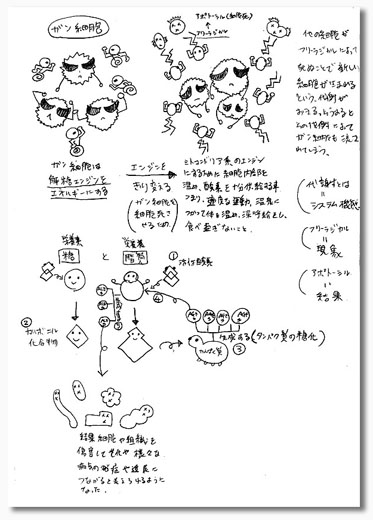 ガン細胞
アポトーシス(細胞死)
フリーラジカル
他の細胞が
フリーラジカルによって
死ぬことで新しい
細胞が生まれる
という、代謝が
ガン細胞は
解糖エンジンを
エネルギーにする
エンジンを
きり変える
ガン細胞を
細胞死さ
せるため
ミトコンドリア系のエンジン
にするために細胞内部を
温め、酸素を
つまり、適度な運動、温泉に
つかって体を温め、深呼吸をし、
食べ過ぎないこと。
代謝とは
=
システム機能
フリーラジカル
=
現象
アポトーシス
=
結果
栄養素
糖
と
栄養素
脂質
① 活性酸素
② カルボニル
化合物
④
AGE
AGE
AGE
AGE
たんぱく質
③
生成する(タンパク質の糖化)
結果細胞や組織を
傷害して老化や様々な
病気の発症や進展に
つながると考えられるように
なった。